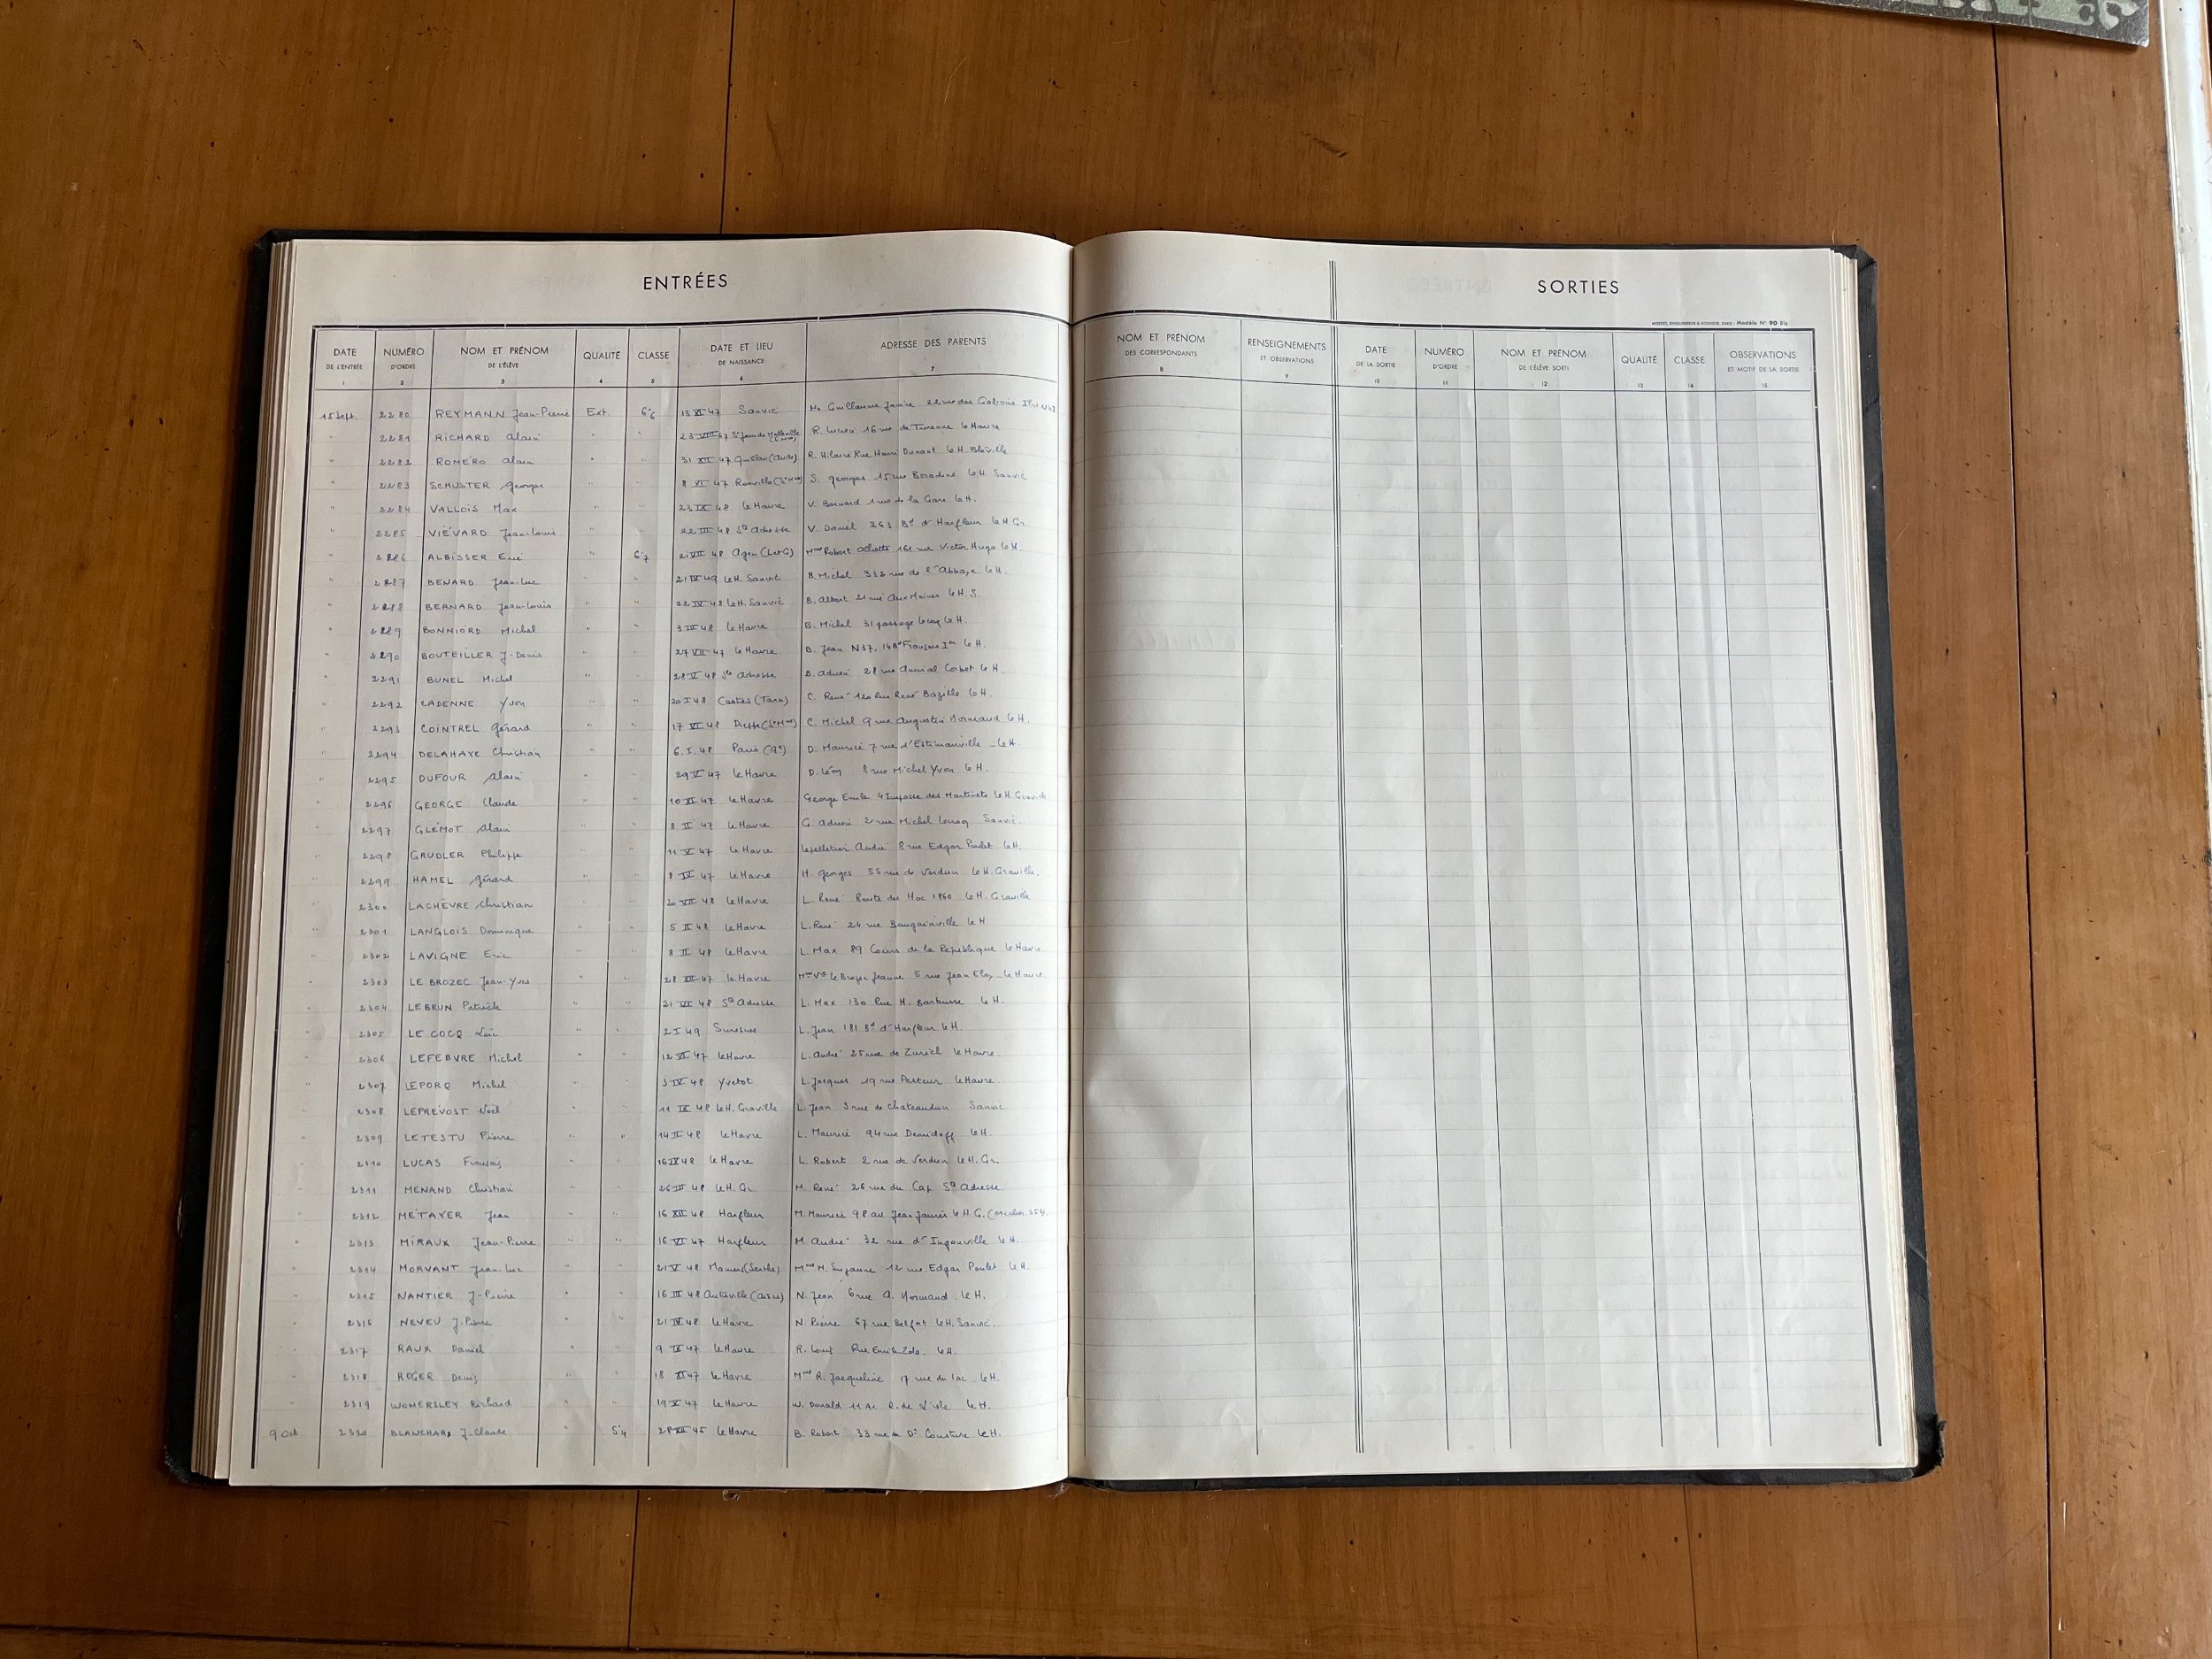 ENTRÉES
DATE DE L'ENTRÉE 1 NUMÉRO D'ORDRE 2 NOM ET PRÉNOM DE L'ÉLÈVE 3 QUALITÉ 4 CLASSE 5 DATE ET LIEU DE NAISSANCE 6 ADRESSE DES PARENTS 7
15 Sept. 2280 REYMANN Jean-Pierre Ext. 6e6 13 XI 47 Sanvic Me Guillaume Janine 22 rue des
" 2281 RICHARD Alain " " 23 VIII 47 R. Lucien 16 rue de Turenne le Havre
" 2282 ROMÉRO Alain " " 31 XII 47 Quillan (Aude) R. Hilaire Rue Henri Dunant le H. Bléville
" 2283 SCHUSTER Georges " " 8 XI 47 S. Georges 15 rue Borodine le H. Sanvic
" 2284 VALLOIS Max " " 23 IX 48 le Havre V. Bernard 1 rue de la Gare le H.
" 2285 VIÉVARD Jean-Louis " 22 III 48 Ste Adresse V. Daniel 263 Bd d'Harfleur le H. Gr.
" 2286 ALBISSER Eric " 6e7 2 VII 48 Agen (L et G) Mme Robert 161 rue Victor Hugo le H.
" 2287 BENARD Jean-Luc " " 21 IV 49 le H. Sanvic B. Michel 332 rue de l'Abbaye le H.
" 2288 BERNARD Jean-Louis " " 22 IV 48 le H. Sanvic B. Albert 21 rue Aux Moines le H. S.
" 2289 BONNIORD Michel " " 3 III 48 le Havre B. Michel 31 passage Lecoq le H.
" 2290 BOUTEILLER J-Denis " " 27 VII 47 le Havre B. Jean N37, 148 Bd François Ier le H.
" 2291 BUNEL Michel " " 28 V 48 Ste Adresse B. Adrien 28 rue Amiral Courbet le H.
" 2292 CADENNE Yvon " " 20 I 48 Castres (Tarn) C. René 120 Rue René Bazille le H.
" 2293 COINTREL Gérard " " 17 VI 48 Dieppe (Sne Mme) C. Michel 9 rue Augustin Normand le H.
" 2294 DELAHAYE Christian " " 6 I 48 Paris (9e) D. Maurice 7 rue d'Estimauville le H.
" 2295 DUFOUR Alain " " 29 V 47 le Havre D. Léon 8 rue Michel Yvon le H.
" 2296 GEORGE Claude " " 10 XI 47 le Havre George Emile 4 Impasse des Martinets le H. Graville
" 2297 GLÉMOT Alain " " 8 II 47 le Havre G. Adrien 2 rue Michel Sanvic.
" 2298 GRUDLER Philippe " " 11 V 47 le Havre Lepelletier André 8 rue Edgar Poulet le H.
" 2299 HAMEL Gérard " " 8 IV 47 le Havre H. Georges 55 rue de Verdun le H. Graville.
" 2300 LACHÈVRE Christian " " 20 VII 48 le Havre L. René Route du Hoc 1860 le H. Graville
" 2301 LANGLOIS Dominique " " 5 II 48 le Havre L. René 24 rue Bougainville le H.
" 2302 LAVIGNE Eric " " 8 II 48 le Havre L. Max 89 Cours de la République le Havre
2303 LE BROZEC Jean-Yves " " 28 XII 47 le Havre Mme Vve le Brozec Jeanne 5 rue Jean Eloy le Havre
" 2304 LEBRUN Patrick " " 21 VI 48 Ste Adresse L. Max 130 Rue H. Barbusse le H.
" 2305 LE COCQ Loïc " " 2 I 49 Suresnes L. Jean 181 Bd d'Harfleur le H.
" 2306 LEFEBVRE Michel " " 12 VI 47 le Havre L. André 25 rue de Zurich le Havre.
" 2307 LEPORQ Michel " " 3 IV 48 Yvetot L. Jacques 19 rue Pasteur le Havre.
" 2308 LEPREVOST Noël " " 11 IX 48 le H. Graville L. Jean 3 rue de Chateaudun Sanvic
" 2309 LETESTU Pierre " " 14 II 48 le Havre L. Maurice 94 rue Demidoff le H.
" 2310 LUCAS François " " 16 IX 48 le Havre L. Robert 2 rue de Verdun le H. Gr.
" 2311 MENAND Christian " " 26 III 48 le H. Gr M. René 26 rue du Cap Ste Adresse.
" 2312 METAYER Jean " " 16 XII 48 Harfleur M. Maurice 98 av. Jean Jaurès le H. G. (escalier 554
" 2313 MIRAUX Jean-Pierre " " 16 VI 47 Harfleur M. André 32 rue d'Ingouville le H.
" 2314 MORVANT Jean-Luc " " 21 V 48 Mamers (Sarthe) Mme M. Suzanne 12 rue Edgar Poulet le H.
" 2315 NANTIER J-Pierre " " 16 III 48 (Aisne) N. Jean 6 rue A. Normand le H.
" 2316 NEVEU J.Pierre " " 21 IV 48 le Havre N. Pierre 67 rue Belfort le H. Sanvic.
" 2317 RAUX Daniel " " 9 IX 47 le Havre R. Louis Rue Emile Zola. le H.
" 2318 ROGER Denis " " 18 XI 47 le Havre Mme R. Jacqueline 17 rue du Lac le H.
" 2319 WOMERSLEY Richard " " 19 X 47 le Havre W. Donald 11 R. de le H.
9 Oct. 2320 BLANCHARD J-Claude " 5e4 28 XII 45 le Havre B. Robert 33 rue du Dr Cousture le H.
SORTIES
Modèle N° 90 Bis
NOM ET PRÉNOM DES CORRESPONDANTS 8 RENSEIGNEMENTS ET OBSERVATIONS 9 DATE DE LA SORTIE 10 NUMÉRO D'ORDRE 11 NOM ET PRÉNOM DE L'ÉLÈVE SORTI 12 QUALITÉ 13 CLASSE 14 OBSERVATIONS ET MOTIF DE LA SORTIE 15